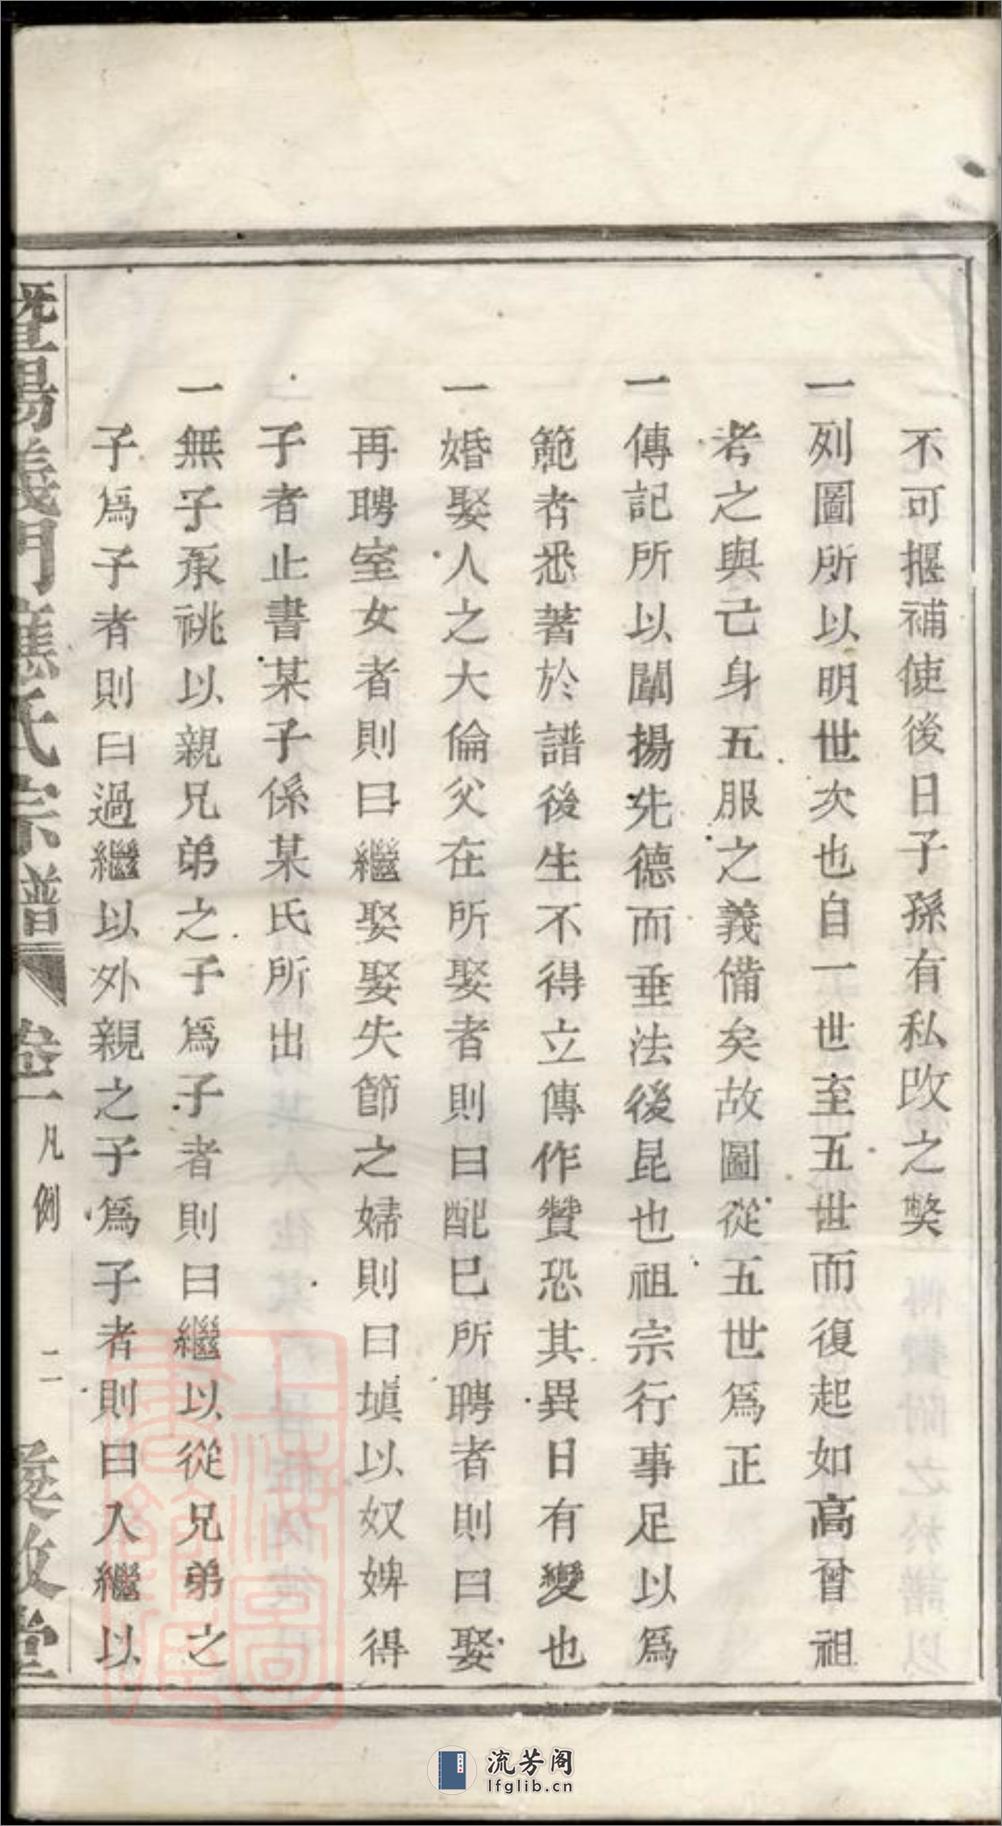 不可揠補使後日子孫有私改之獘
一列圖所以明世次也自一世至五世而復起如高曾祖
考之與己身五服之義備矣故圖從五世爲正
一傳記所以闡揚先德而垂法後昆也祖宗行事足以爲
範者悉著於譜後生不得立傳作贊恐其異日有變也
一婚娶人之大倫父在所娶者則曰配已所聘者則曰娶
再聘室女者則曰繼娶娶失節之婦則曰塡以奴婢得
子者止書某子係某氏所出
一無子承祧以親兄弟之子爲子者則曰繼以從兄弟之
子爲子者則曰過繼以外親之子爲子者則曰入繼以
暨陽義門 氏宗譜 卷一 凡例 二 敘堂
流芳阁
lfglib.cn